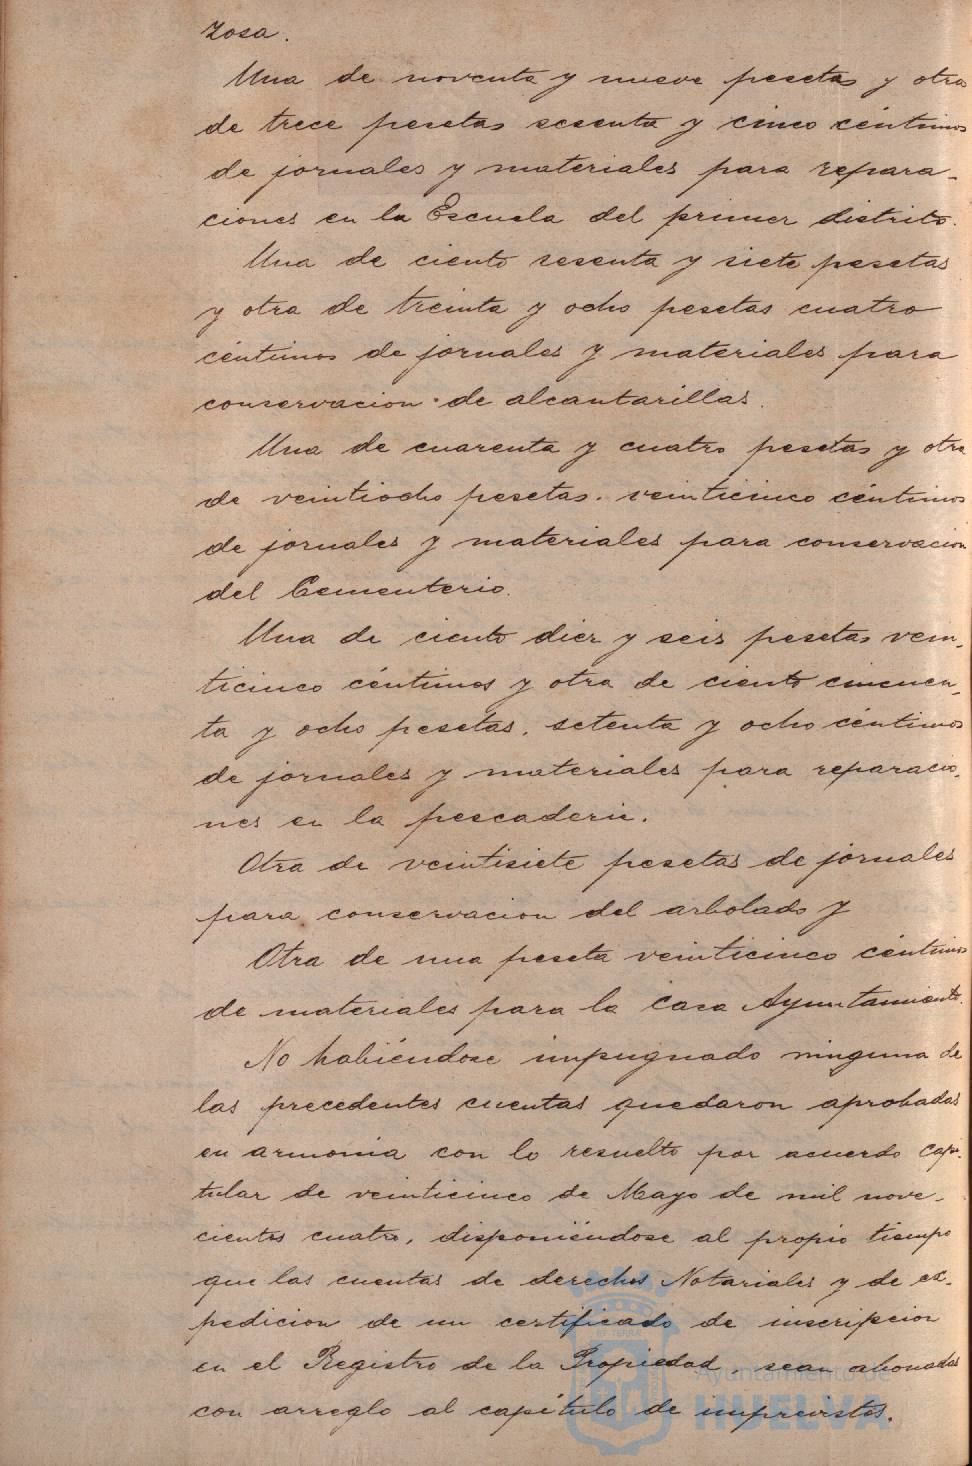 zosa.
Una de noventa y nueve pesetas y otra
de trece pesetas sesenta y cinco céntimos
de jornales y materiales para repara-
ciones en la Escuela del primer distrito.
Una de ciento sesenta y siete pesetas
y otra de treinta y ocho pesetas cuatro
céntimos de jornales y materiales para
conservacion de alcantarillas.
Una de cuarenta y cuatro pesetas y otra
de veintiocho pesetas. veinticinco céntimos
de jornales y materiales para conservacion
del Cementerio.
Una de ciento diez y seis pesetas vein-
ticinco céntimos y otra de ciento cincuen-
ta y ocho pesetas, setenta y ocho céntimos
de jornales y materiales para reparacio-
nes en la pescaderia.
Otra de veintisiete pesetas de jornales
para conservacion del arbolado y
Otra de una peseta veinticinco céntimos
de materiales para la Casa Ayuntamiento.
No habiéndose impugnado ninguna de
las precedentes cuentas quedaron aprobadas
en armonia con lo resuelto por acuerdo capi-
tular de veinticinco de Mayo de mil nove-
cientos cuatro, disponiéndose al propio tiempo
que las cuentas de derechos Notariales y de ex-
pedicion de un certificado de inscripcion
en el Registro de la Propiedad, sean abonadas
con arreglo al capítulo de imprevistos.
Ayuntamiento de
HUELVA